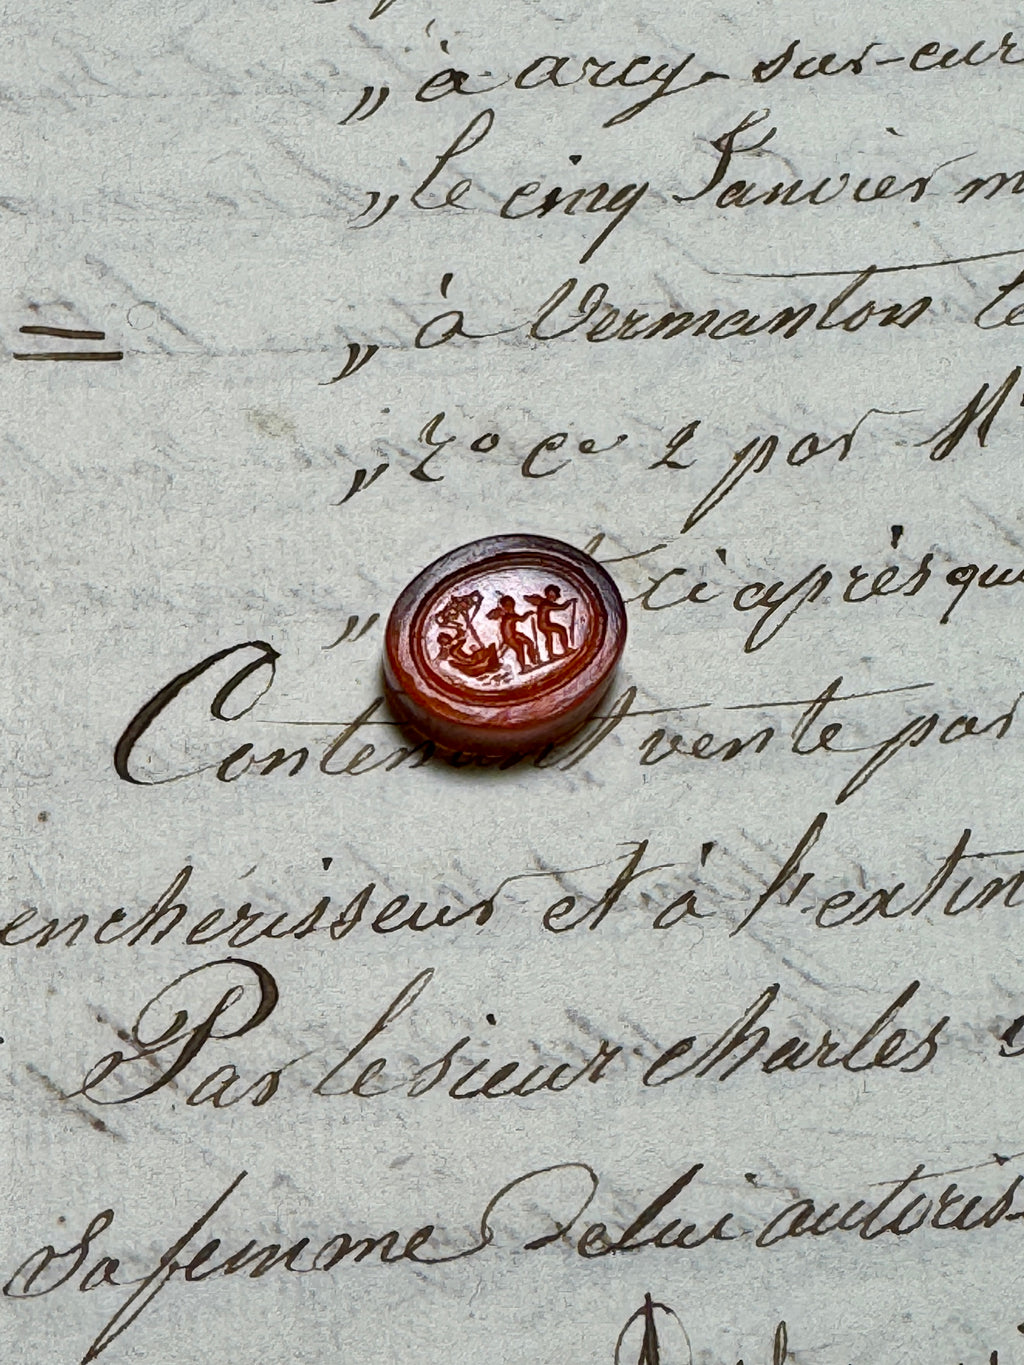 „ à arcy-sur-cur
„ le cinq Janvier m
„ à Vermanton le
„ ro ce 2 par M
„ ci après qu
Contenant vente par
encherisseur et à l'extin
Par le sieur charles
Sa femme de lui autoris-